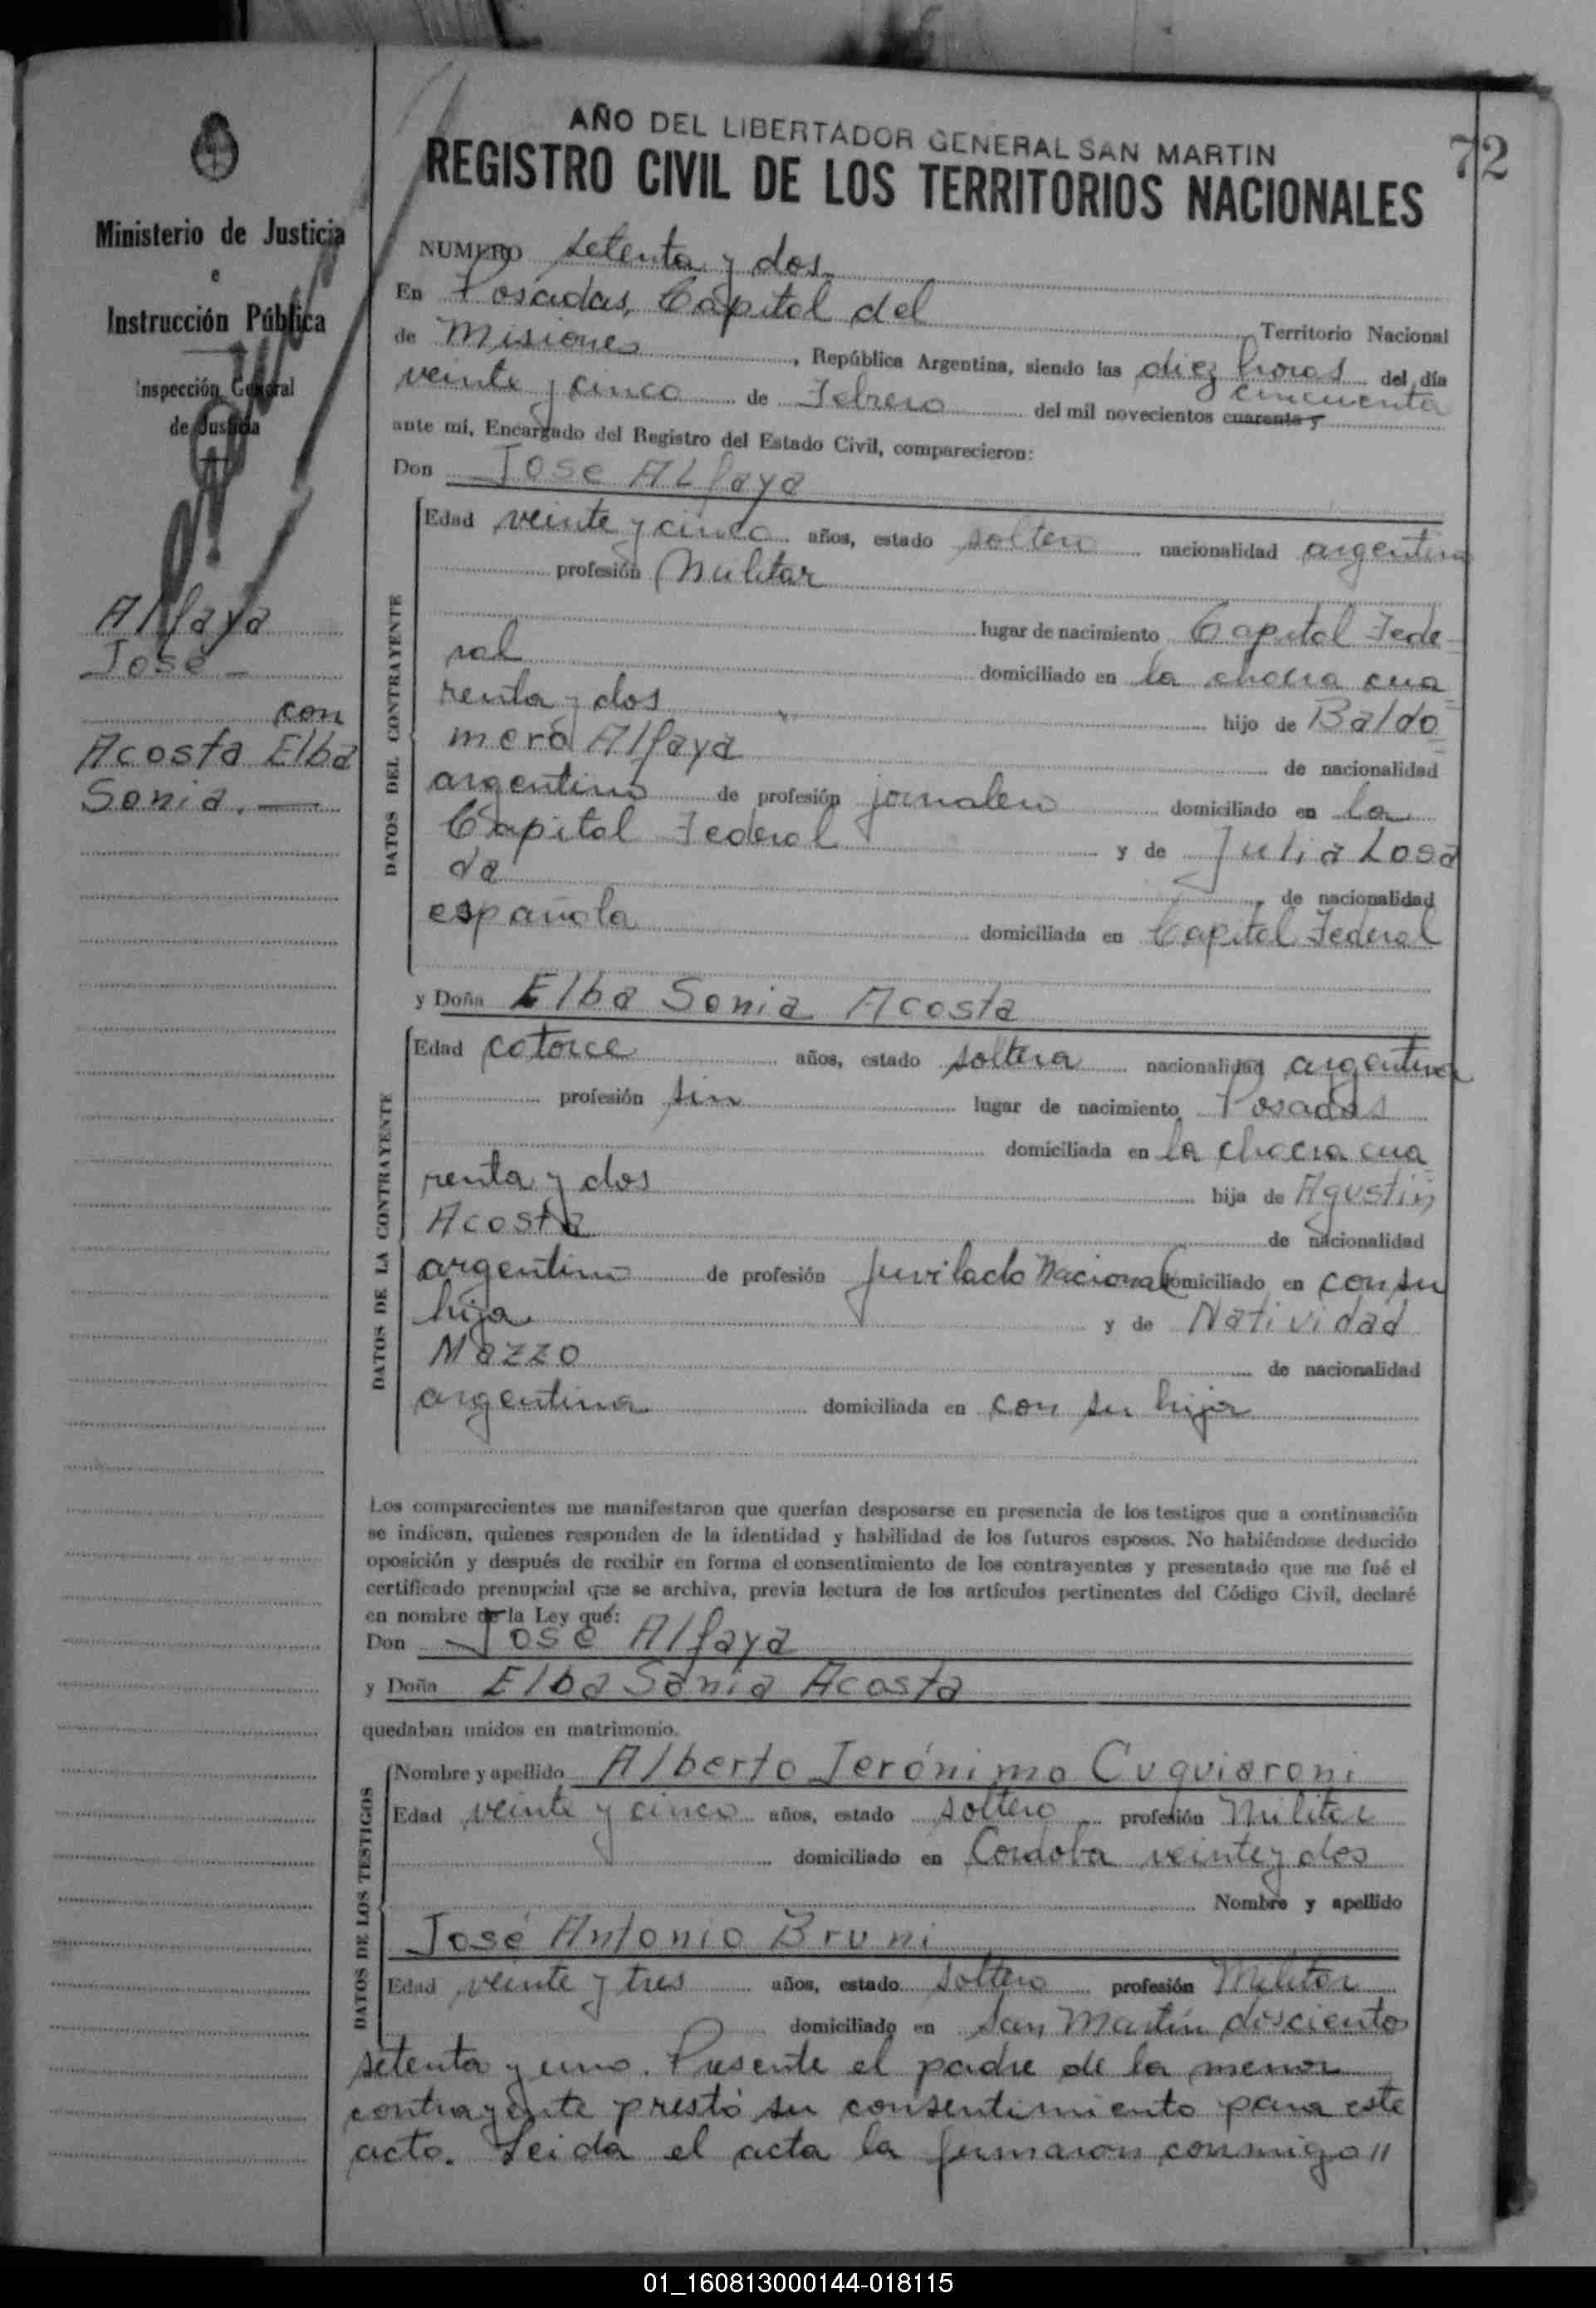 AÑO DEL LIBERTADOR GENERAL SAN MARTIN
REGISTRO CIVIL DE LOS TERRITORIOS NACIONALES
72
Ministerio de Justicia
e
Instrucción Pública
Inspección General
de Justicia
Alfaya
José
con
Acosta Elba
Sonia.
NUMERO setenta y dos
En Posadas, Capital del
Territorio Nacional
de Misiones, República Argentina, siendo las diez horas del día
veinte y cinco de Febrero del mil novecientos cuarenta y cincuenta
ante mí, Encargado del Registro del Estado Civil, comparecieron:
Don José ALfaya
DATOS DEL CONTRAYENTE
Edad veinte y cinco años, estado soltero nacionalidad argentino
profesión Militar
lugar de nacimiento Capital Fede-
ral domiciliado en la chacra cua
renta y dos hijo de Baldo=
mero Alfaya de nacionalidad
argentino de profesión jornalero domiciliado en la
Capital Federal y de Julia Losa
da de nacionalidad
española domiciliada en Capital Federal
y Doña Elba Sonia Acosta
DATOS DE LA CONTRAYENTE
Edad catorce años, estado soltera nacionalidad argentina
profesión sin lugar de nacimiento Posadas
domiciliada en la chacra cua
renta y dos hija de Agustín
Acosta de nacionalidad
argentino de profesión Juvilado Nacional domiciliado en con su
hija y de Natividad
Mazzo de nacionalidad
argentina domiciliada en con su hija
Los comparecientes me manifestaron que querían desposarse en presencia de los testigos que a continuación
se indican, quienes responden de la identidad y habilidad de los futuros esposos. No habiéndose deducido
oposición y después de recibir en forma el consentimiento de los contrayentes y presentado que me fué el
certificado prenupcial que se archiva, previa lectura de los artículos pertinentes del Código Civil, declaré
en nombre de la Ley qué:
Don José Alfaya
y Doña Elba Sonia Acosta
quedaban unidos en matrimonio.
DATOS DE LOS TESTIGOS
Nombre y apellido Alberto Jerónimo Cuquiaroni
Edad veinte y cinco años, estado soltero profesión Militar
domiciliado en Cordoba veinte y dos
Nombre y apellido
José Antonio Bruni
Edad veinte y tres años, estado soltero profesión Militar
domiciliado en San Martín doscientos
setenta y uno. Presente el padre de la menor
contrayente prestó su consentimiento para este
acto. Leida el acta la firmaron conmigo //
01_160813000144-018115